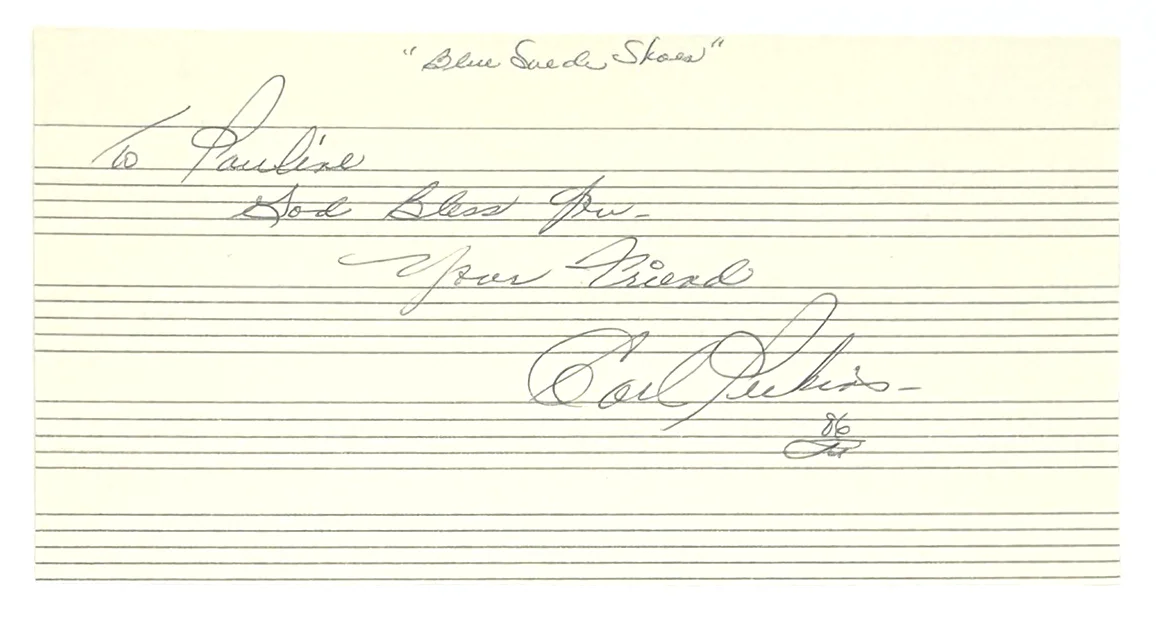 "Blue Suede Shoes"
To Pauline
God Bless You-
Your Friend
Carl Perkins-
86